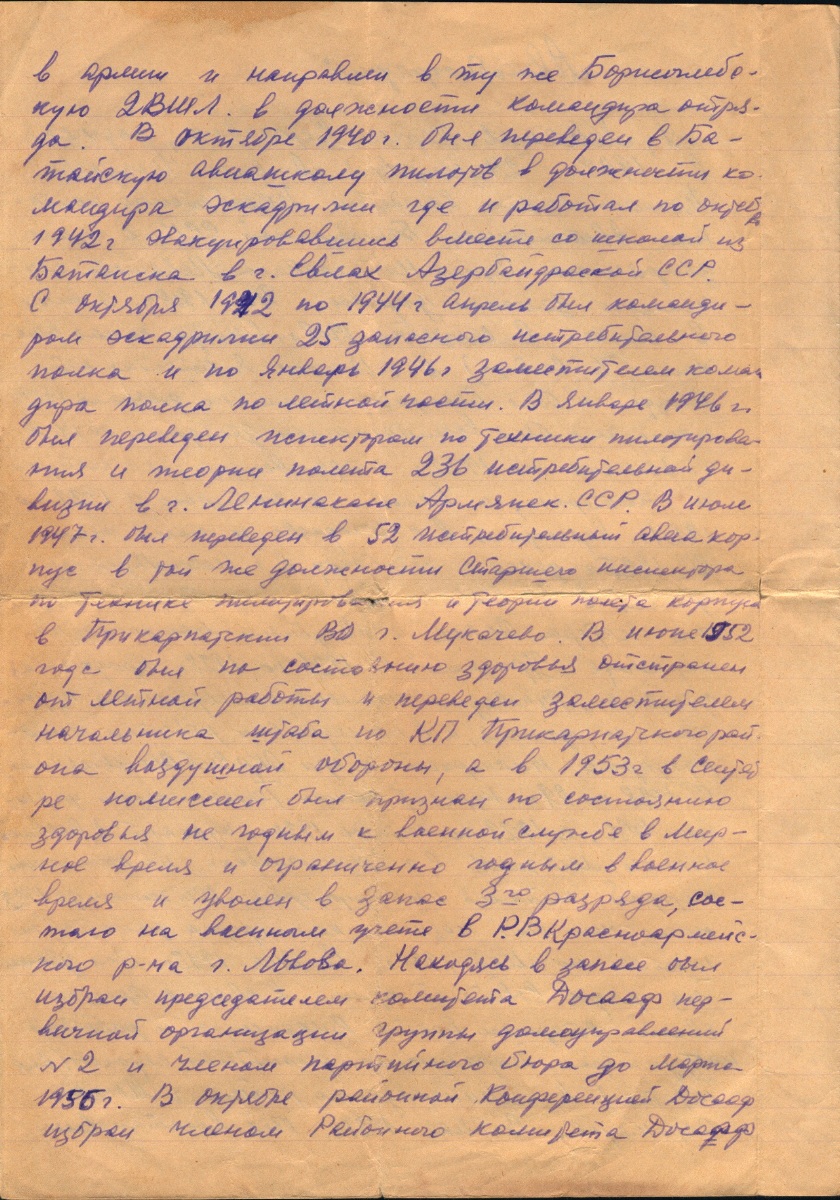 в армии и направлен в ту же Борисоглебс-
кую 2ВШЛ. в должности командира отря-
да. В октябре 1940 г. был переведен в Ба-
тайскую авиашколу пилотов в должности ко-
мандира эскадрилии где и работал по октяб
1942 г эвакуировавшись вместе со школой из
Батайска в г. Евлах Азербайдраской ССР.
С октября 1942 по 1944 г апрель был команди-
ром эскадрилии 25 запасного истребительного
полка и по январь 1946 г заместителем коман
дира полка по летной части. В январе 1946 г.
был переведен испектором по техники пилотирова-
ния и теории полета 236 истребительной ди-
визии в г. Ленинакане Армянск. ССР. В июле
1947 г. был переведен в 52 истребительный авиакор-
пус в той же должности Старшего инспектора
по технике пилотирования и теории полета корпуса
в Прикарпатский ВО г. Мукачево. В июне 1952
года был по состоянию здоровья отстранен
от летной работы и переведен заместителем
начальника штаба по КП Прикарпатского рай-
она воздушной обороны, а в 1953 г в Сентяб
ре комиссией был признан по состоянию
здоровья не годным к военной службе в мир-
ное время и ограниченно годным в военное
время и уволен в запас 3го разряда, сос-
тою на военным учете в Р.В Красноармейс-
кого р-на г. Львова. Находясь в запасе был
избран председателем комитета Досааф пер-
вичной организации группы домоуправлений
N 2 и членом партийного бюра до марта
1956 г. В октябре районной Конференцией Досааф
избран членом Районного комитета Досааф